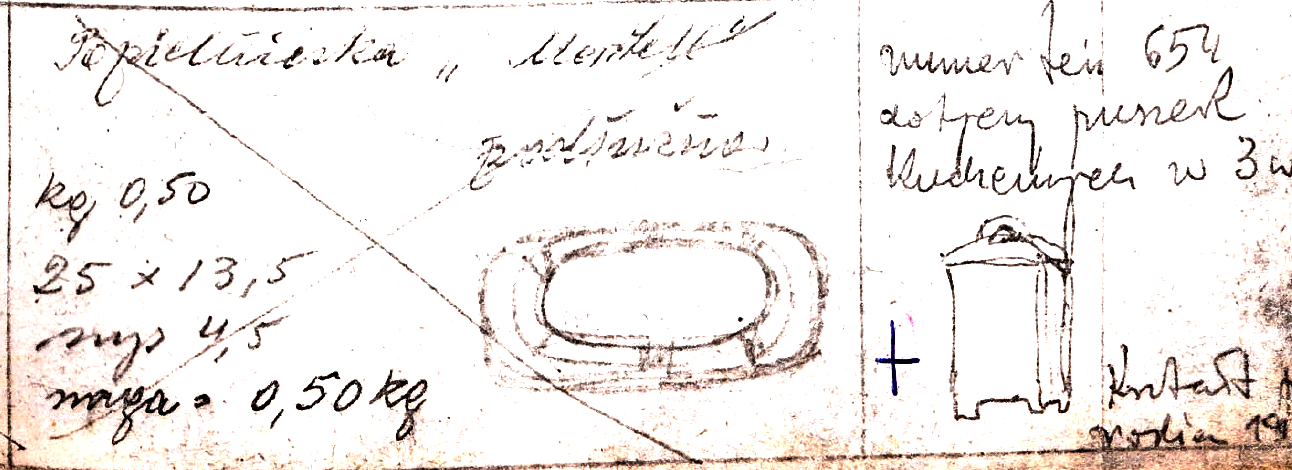 Popielniczka „Montell”
podłużna
kg 0,50
25 x 13,5
wys 4,5
waga = 0,50 kg
numer ten 654
dotyczy puszek
kuchennych w 3
Kształt